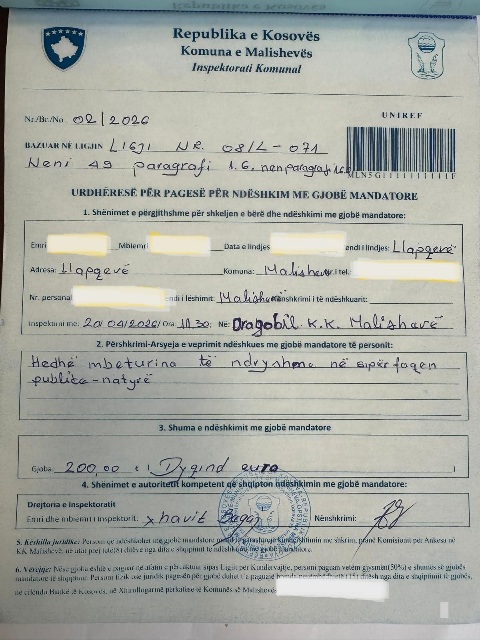 Republika e Kosovës
Komuna e Malishevës
Inspektorati Komunal
Nr./Br./No. 02/2026
UNIREF
BAZUAR NË LIGJIN LIGJI NR. 08/L-071
Neni 49 paragrafi 1.6. nenparagrafi
URDHËRESË PËR PAGESË PËR NDËSHKIM ME GJOBË MANDATORE
1. Shënimet e përgjithshme për shkeljen e bërë dhe ndëshkimi me gjobë mandatore:
Emri Mbiemri Data e lindjes endi i lindjes: Llapqevë
Adresa: Llapqevë Komuna: Malishevë
Nr. personal endi i lëshimit: Malishevë Nënshkrimi i të ndëshkuarit:
Inspektimi më: 20/04/2026 Ora 11.30 Në: Dragobil K.K. Malishevë
2. Përshkrimi-Arsyeja e veprimit ndëshkues me gjobë mandatore të personit:
Hedhë mbeturina të ndryshme në sipërfaqen
publike-natyrë
3. Shuma e ndëshkimit me gjobë mandatore
Gjoba: 200,00 € ( Dyqind euro )
4. Shënimet e autoritetit kompetent që shqipton ndëshkimin me gjobë mandatore:
Drejtoria e Inspektoratit
Emri dhe mbiemri i inspektorit. Xhavit Nënshkrimi:
5. Këshilla juridike: Personi që ndëshkohet me gjobë mandatore
KK Malishevës, në afat prej tetë(8) ditëve nga dita e shqiptimit të ndëshkimit me gjobë mandatore.
6. Vërejtje: Nëse gjoba është e paguar në afatin e përcaktuar sipas Ligjit për Kundërvajtje, personi paguan vetëm gjysmën(50%) e shumës së gjobës
mandatore të shqiptuar. Personi fizik ose juridik pagesën për gjobë duhet ta paguajë ditësh nga dita e shqiptimit të gjobës,
në cilëndo Bankë të Kosovës, në Xhirollogarinë përkatëse të Komunës së Malishevës